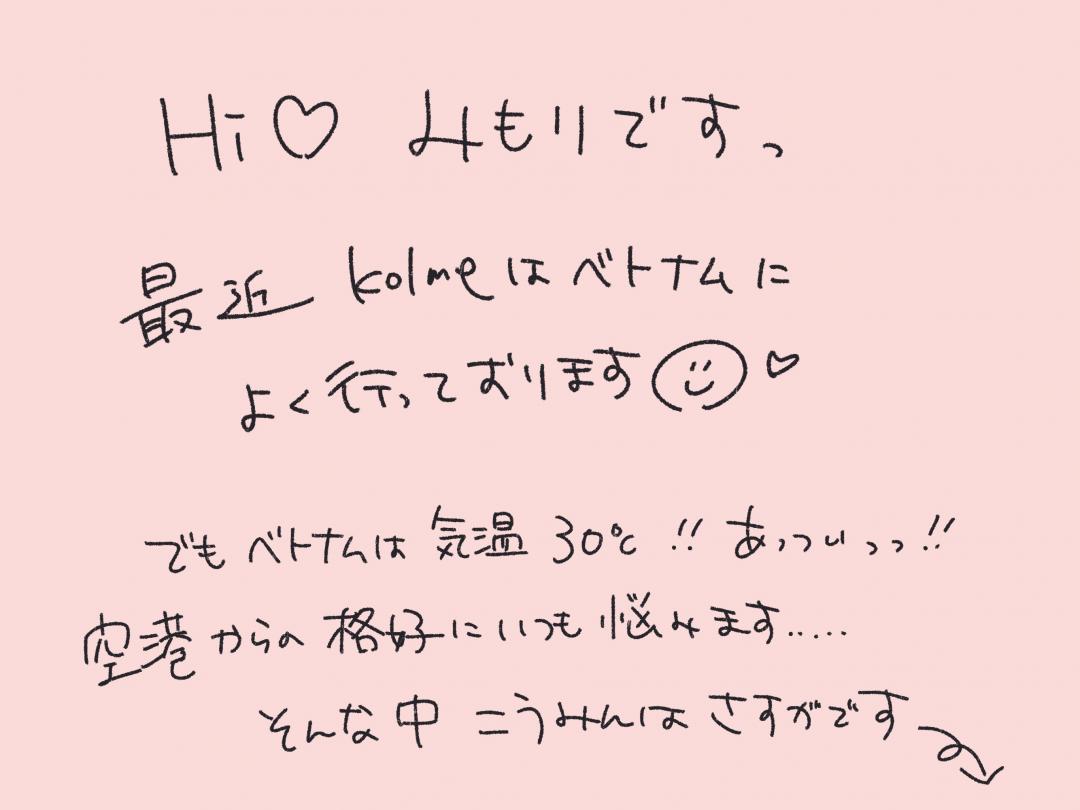 Hi♡ みもりですっ
最近 kolmeはベトナムに
よく行っております☺♡
でもベトナムは気温30℃!! あっついっっ!!
空港からの格好にいつも悩みます.....
そんな中 こうみんはさすがです